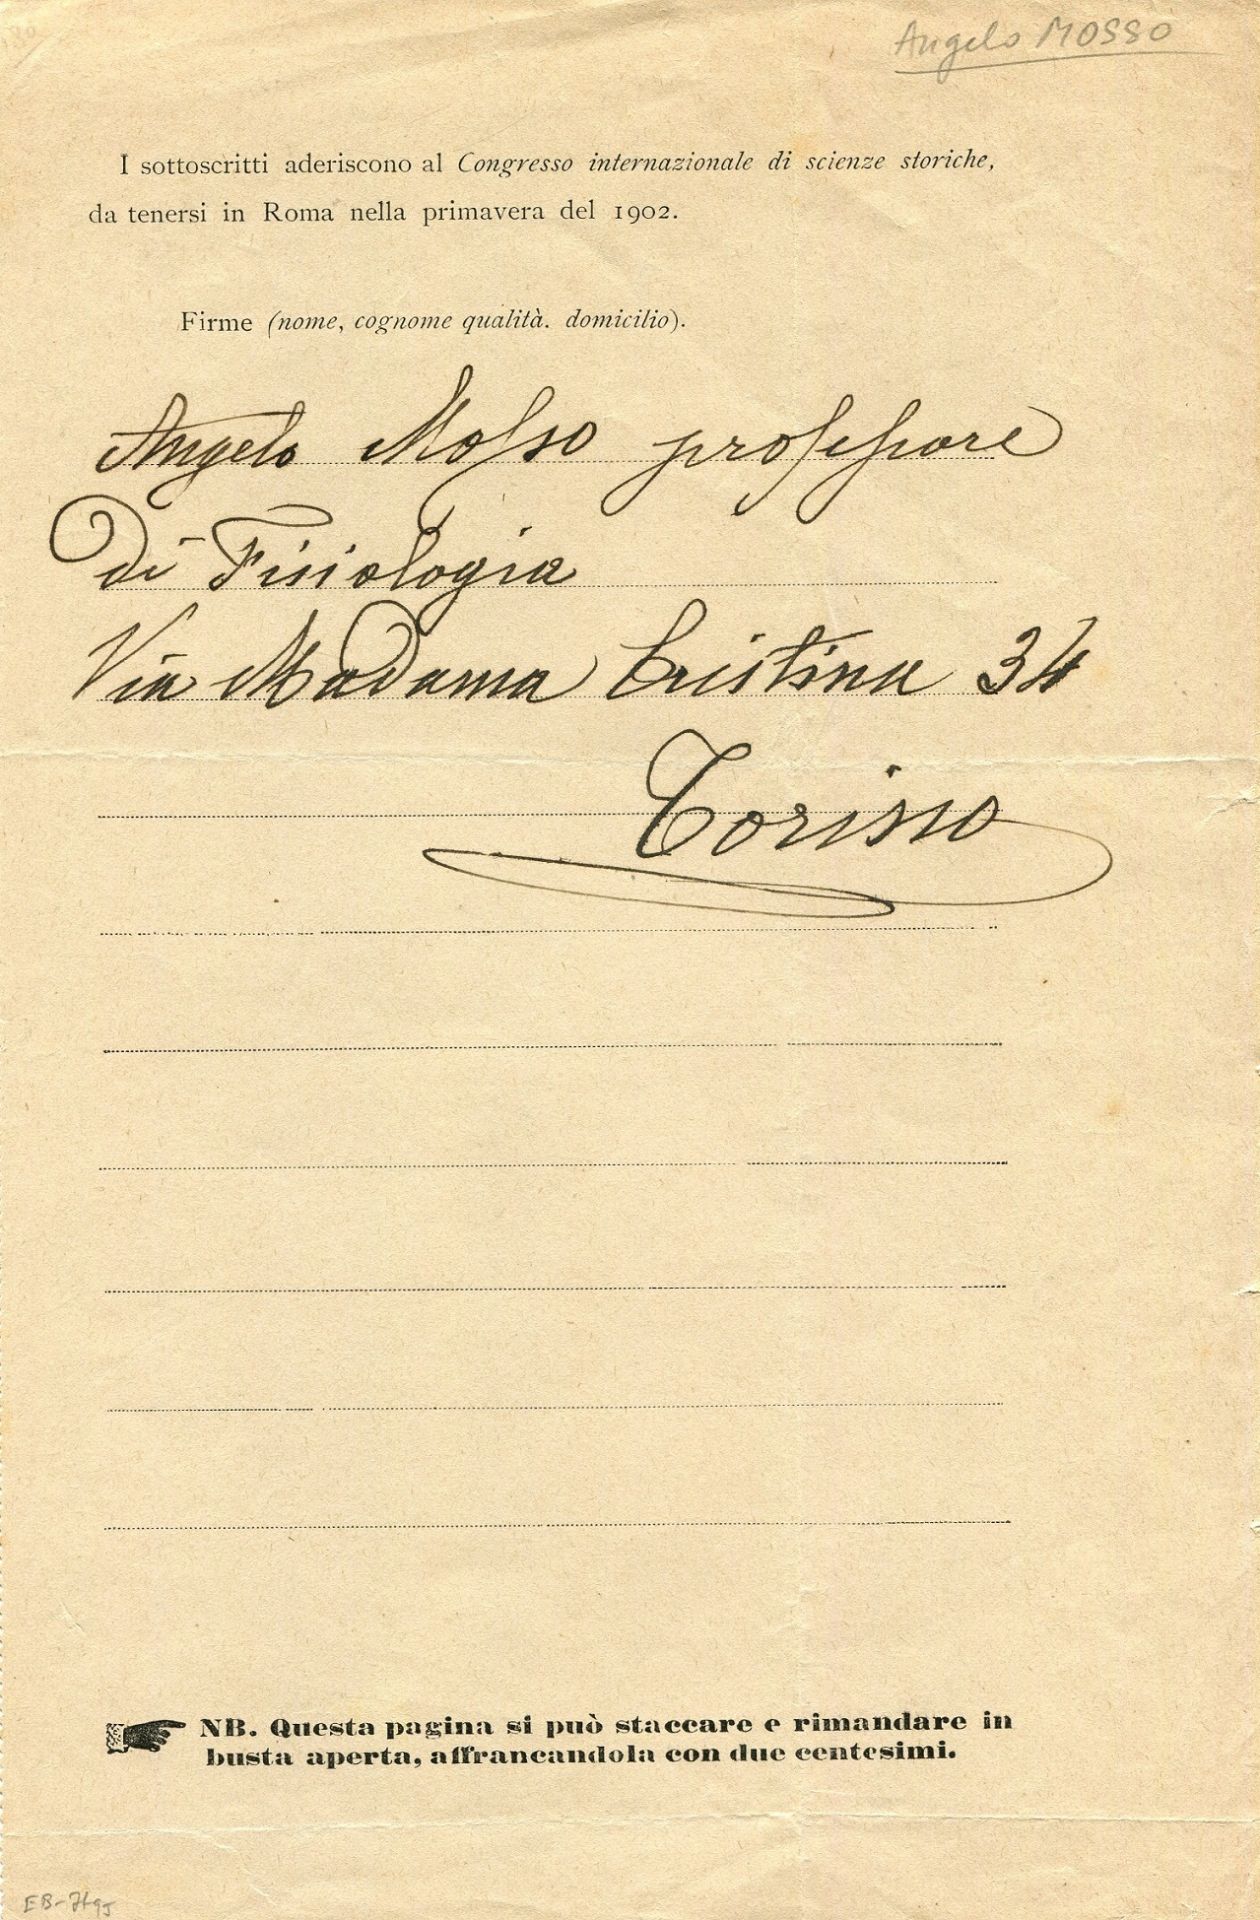 Angelo MOSSO
I sottoscritti aderiscono al Congresso internazionale di scienze storiche,
da tenersi in Roma nella primavera del 1902.
Firme (nome, cognome qualità. domicilio).
Angelo Mosso professore
di Fisiologia
Via Madama Cristina 34
Torino
NB. Questa pagina si può staccare e rimandare in
busta aperta, affrancandola con due centesimi.